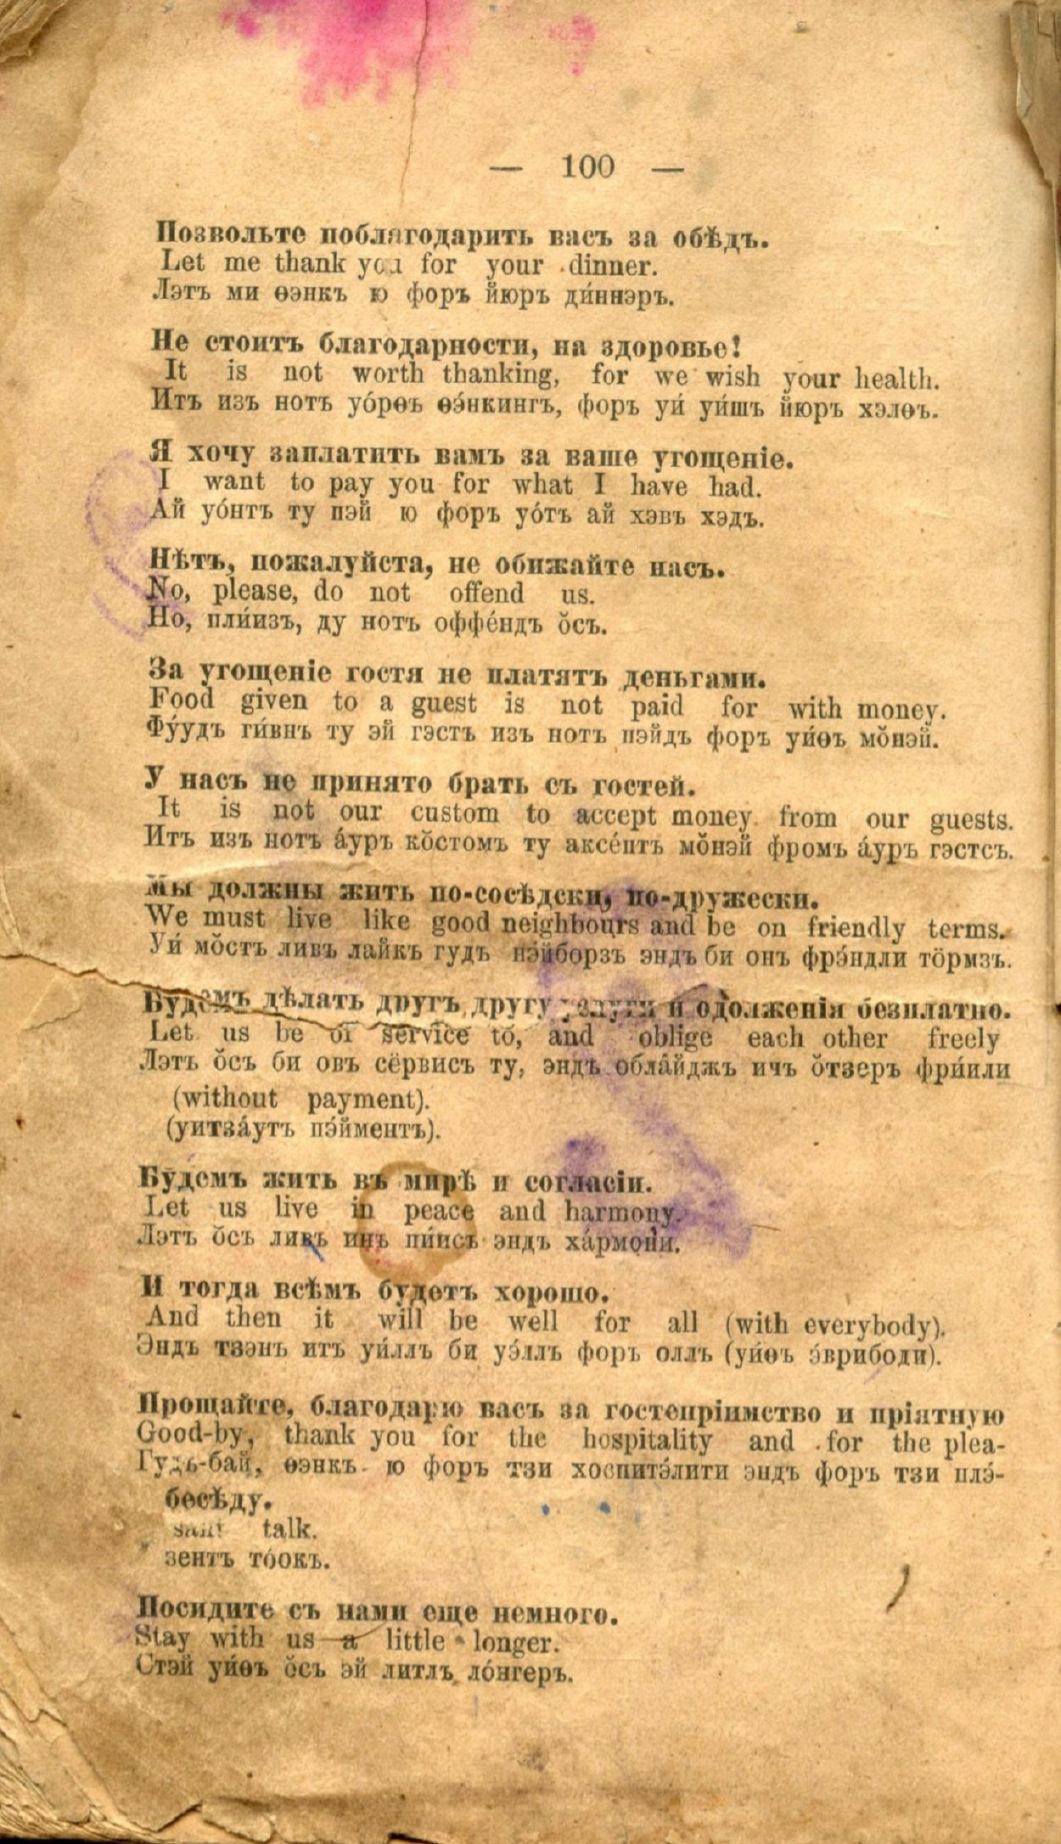 — 100 —
Позвольте поблагодарить васъ за обѣдъ.
Let me thank you for your dinner.
Лэтъ ми ѳэнкъ ю форъ йюръ ди́ннэръ.
Не стоитъ благодарности, на здоровье!
It is not worth thanking, for we wish your health.
Итъ изъ нотъ уо́рѳъ ѳэ́нкингъ, форъ уи́ уи́шъ йюръ хэлѳъ.
Я хочу заплатить вамъ за ваше угощеніе.
I want to pay you for what I have had.
Ай уо́нтъ ту пэй ю форъ уо́тъ ай хэвъ хэдъ.
Нѣтъ, пожалуйста, не обижайте насъ.
No, please, do not offend us.
Но, пли́изъ, ду нотъ оффе́ндъ о̆съ.
За угощеніе гостя не платятъ деньгами.
Food given to a guest is not paid for with money.
Фу́удъ ги́внъ ту эй гэстъ изъ нотъ пэйдъ форъ уи́ѳъ мо̆нэй.
У насъ не принято брать съ гостей.
It is not our custom to accept money from our guests.
Итъ изъ нотъ а́уръ ко̆стомъ ту аксе́птъ мо̆нэй фромъ а́уръ гэстсъ.
Мы должны жить по-сосѣдски, по-дружески.
We must live like good neighbours and be on friendly terms.
Уи́ мо̆стъ ливъ лайкъ гудъ нэ́йборзъ эндъ би онъ фрэ́ндли тёрмзъ.
Будемъ дѣлать другъ другу услуги и одолженія безплатно.
Let us be of service to, and oblige each other freely
Лэтъ о̆съ би овъ сёрвисъ ту, эндъ обла́йджъ ичъ о̆тзеръ фри́или
(without payment).
(уитза́утъ пэ́йментъ).
Будемъ жить въ мирѣ и согласіи.
Let us live in peace and harmony.
Лэтъ о̆съ ливъ инъ пи́исъ эндъ ха́рмони.
И тогда всѣмъ будетъ хорошо.
And then it will be well for all (with everybody).
Эндъ тзэнъ итъ уи́ллъ би уэ́ллъ форъ оллъ (уи́ѳъ э́врибоди).
Прощайте, благодарю васъ за гостепріимство и пріятную
Good-by, thank you for the hospitality and for the plea-
Гудъ-бай, ѳэнкъ ю форъ тзи хоспитэ́лити эндъ форъ тзи плэ́-
бесѣду.
sant talk.
зентъ то́окъ.
Посидите съ нами еще немного.
Stay with us a little longer.
Стэй уи́ѳъ о̆съ эй литлъ ло́нгеръ.